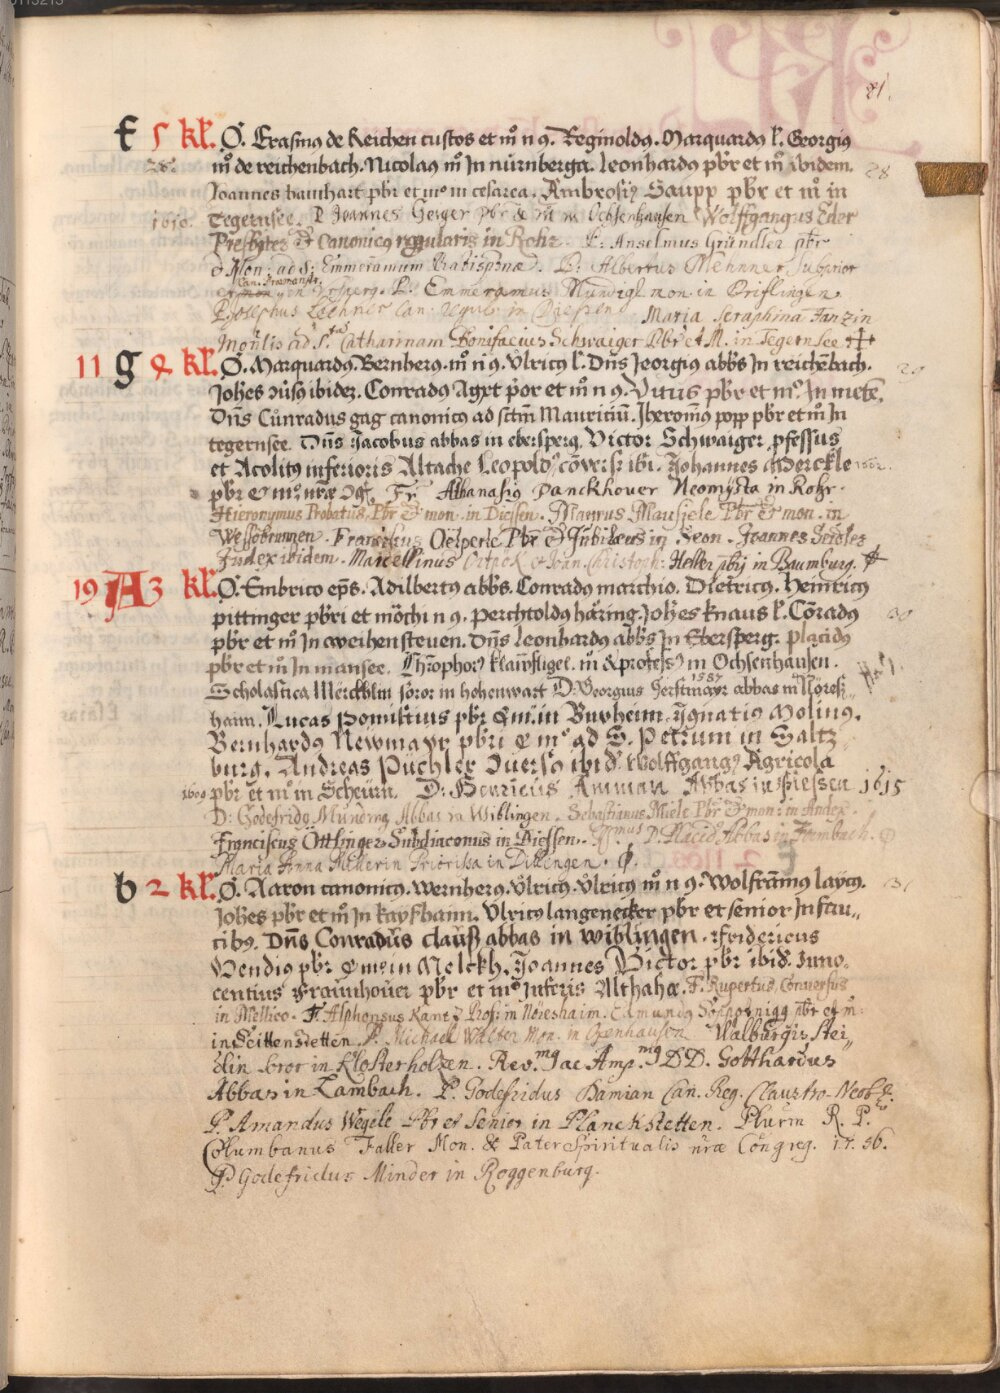 21.
f 5 kl. O. Erasmus de Reichen custos et m̊ n 9. Reginoldus. Marquardus l'. Georgius
28. m̊ de reichenbach. Nicolaus m̊ In nürnberga. Leonhardus pbr et m̊ ibidem. 28
Joannes hawhart pbr et mo in cesarea. Ambrosius Saupp pbr et m̊ in
1610. Tegernsee. P. Joannes Gerger pbr & m̊ in Ochsenhausen Wolffgangus Eder
Presbyter & Canonicus regularis in Rohr. P. Anselmus Gründler pbr
& Mon: ad S. Emmeramum Ratisponæ. P. Albertus Mehnner Subprior
Can. Præmonstr.
in Ursperg. P. Emmeramus Mundigl mon. in Priflingen
Josephus Lechner Can. Regul. in Diessen Maria Seraphina Tanzin
Monlis ad S. Catharinam Bonifacius Schwaiger Pbr et M. in Tegernsee
11 g 4 kl. O. Marquardus. Bernherus. m̊ n 9. Ulricus l'. Dns Jeorgius abbs In reichēbach. 29
Johēs ibidez. Conradus Agxt p̄or et m̊ n 9. Vitus pbr et mo. In mete.
Dn̄s Cūnradus gag canonicus ad sctm̄ Mauriciū. Iheronimus popp pbr et m̊ In
tegernsee. Dn̄s Jacobus abbas in ebersperg. Victor Schwaiger pfessus
et Acolitus inferioris Altache Leopoldus cōvers ibi. Johannes Merckle 1612.
pbr & mo nræ Fr. Athanasius Danckhover Neomysta in Rohr.
Hieronymus Probatus, Pbr & mon. in Diessen. Maurus Mausiele Pbr & mon. in
Wessobrunnen. Franciscus Oesperle Pbr & Jubilæus in Seon. Joannes Seidler
Judex ibidem. Marcellinus Ortneck & Joan. Christoph: Heller pbri in Baumburg.
19 A 3 kl. O. Embrico ep̄s. Adilbertus abbs. Conradus marchio. Dietricus. Heinricus
pittinger pbri et mōchi n 9. Perchtoldus häring. Johēs knaus l'. Cōradus 30
pbr et m̊ In weihensteven. Dn̄s Leonhardus abbs In Ebersperg. placidus
pbr et m̊ In mansee. Christophorus klawfligel. m̊ & professus in Ochsenhausen.
1587
Scholastica Merckhlin soror in hohenwart D. Georgius Gerstmayr abbas in Nöresz,,
haim. Lucas Pomistius pbr & m. in Buxheim. Ignatius Molinus.
Bernhardus Newmayr pbri & mo ad S. Petrum in Saltz
burg. Andreas Puchler Iuersus ibid. Wolffgangus Agricola
1609 pbr et m̊ in Scheurn. D. Henricus Amman Abbas in Fiessen 1615
D: Godefridus Munding Abbas in Wiblingen. Sebastianus Miele Pbr & mon: in Andex.
Franciscus Ottlinger Subdiaconus in Diessen. Rmus D. Placidus Abbas in Formbach.
Maria Anna Kellerin Priorissa in Dillingen.
b 2 kl. O. Aaron canonicus. Wernherus. Ulricus. Ulricus m̊ n 9. Wolframus laycus. 31
Johēs pbr et m̊ In kayshaim. Ulricus langenecker pbr et senior In fau,,
cibus. Dn̄s Conradus claus abbas in wiblingen. Fridericus
Vendius pbr & mo in Melckh. Joannes Victor pbr ibid. Inno,
centius Fraunhouer pbr et mo Inferis Althahæ. F. Rupertus Conversus
in Mellico. F. Alphonsus Kantz Prof: in Nöresheim. Edmundus pbr et m:
in Seittenstetten. P. Michael Walter Mon. in Oxenhausen Walburgis Stei,,
din soror in Closterholzen. Rev.mus ac Amp.mus D.D. Gotthardus
Abbas in Lambach. P. Godefridus Damian Can. Reg. Claustro-Neob.
P. Amandus Wegele Pbr et Senior in Planckstetten. Plurm R. P.
Columbanus Faller Mon. & Pater Spiritualis nræ Congreg. 1756.
P. Godefridus Minder in Roggenburg.